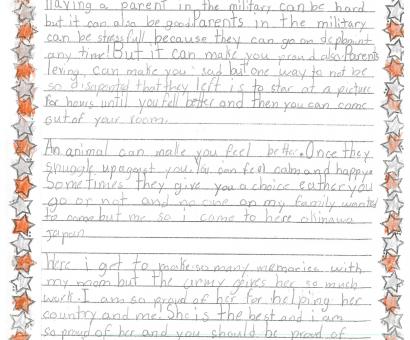 Having a parent in the military can be hard
but it can also be good Parents in the military
can be stressfull because they can go on deploynt
any time! But it can make you proud also Parents
leving, can make you sad but one way to not be
so disapented that they left is to star at a picture
for hours until you fell better and then you can come
out of your room.
An animal can make you feel better. Once they
snuggle up agenst you. You can feel calm and happy
Sometimes they give you a choice eather you
go or not and no one on my family wanted
to come but me so i came to here okinawa
japan
Here i get to make so many memories with
my mom but the army gives her so much
work. I am so proud of her for helping her
country and me. She is the best and i am
so proud of her and you should be proud of